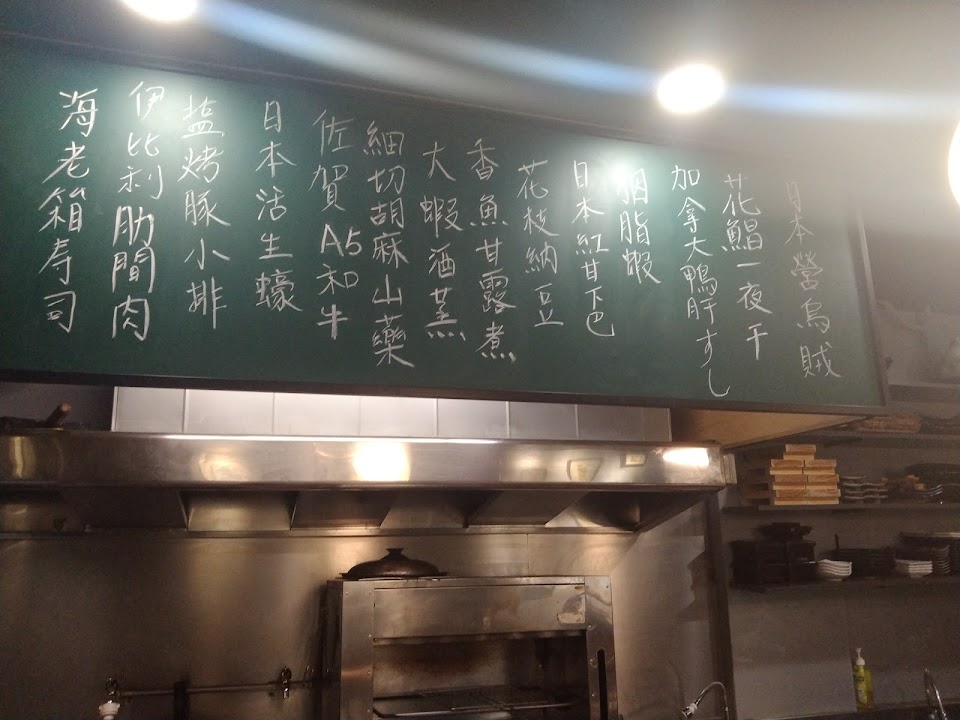 日本營烏賊
花鯧一夜干
加拿大鴨肝すし
胭脂蝦
日本紅甘下巴
花枝納豆
香魚甘露煮
大蝦酒蒸
細切胡麻山藥
佐賀A5和牛
日本活生蠔
盐烤豚小排
伊比利肋間肉
海老箱寿司